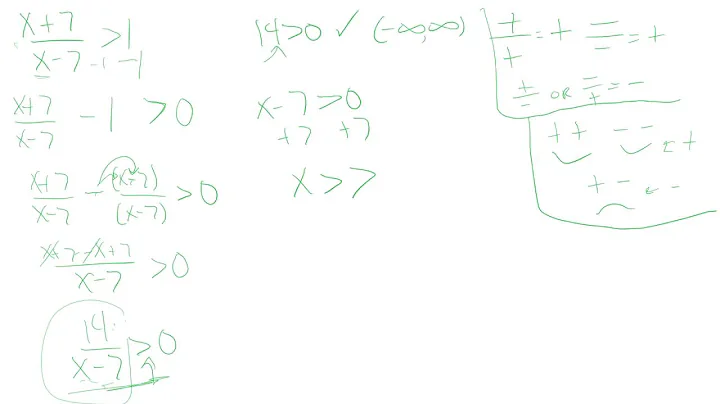 x+7/x-7 > 1
-1 -1
x+7/x-7 - 1 > 0
x+7/x-7 - (x-7)/(x-7) > 0
x+7-x+7/x-7 > 0
14/x-7 > 0
14>0 ✓ (-∞,∞)
x-7>0
+7 +7
x>7
+/+ = + -/- = +
+/- OR -/+ = -
+ + - - ← +
+ - ← -